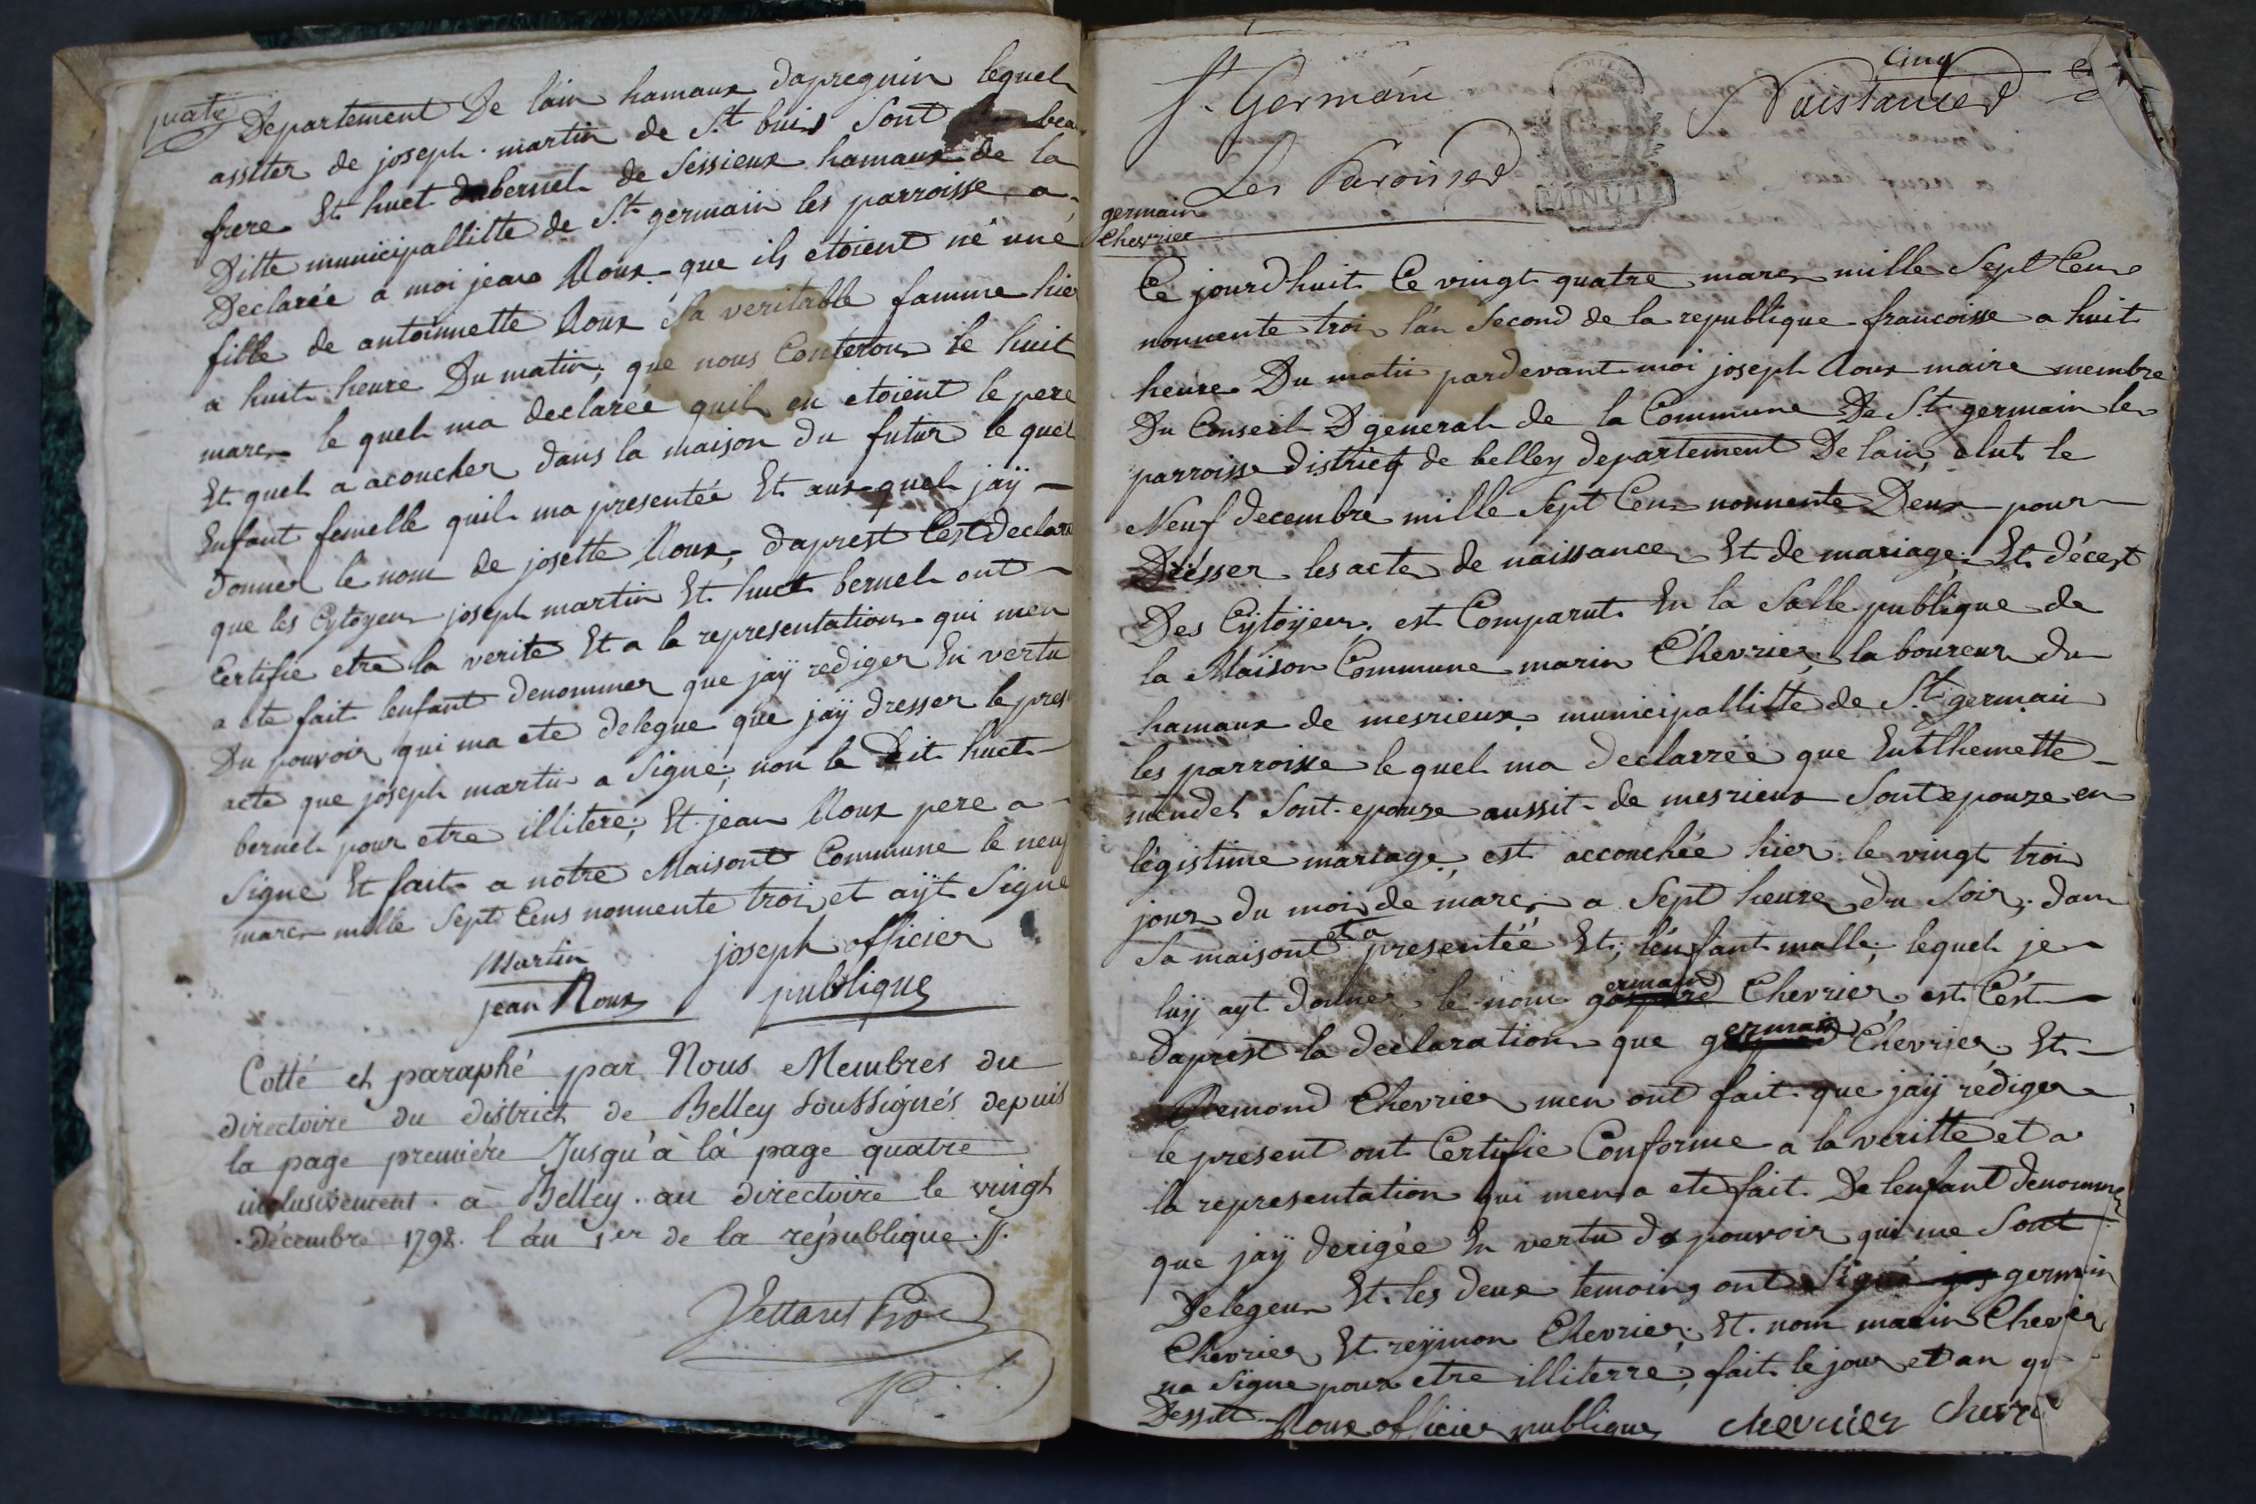 quatre
Departement De lain hamaux dapregnin lequel
assiter de joseph martin de St buis Sont beau
frere Et huet bernel de Sessieux hamaux de la
Ditte municipallitte de St germain les parroisse a
Declarée a moi jean Roux que ils etoient né une
fille de antoinnette Roux Sa veritable famme hier
a huit heure Du matin, que nous Conteron le huit
marcs le quel ma declarée quil en etoient le pere
Et quel a acoucher dans la maison du futur le quel
Enfant femelle quil ma presentée Et aux quel jaÿ
donner le nom de josette Roux, daprest Cest declara
que les Cytoyens joseph martin Et huet bernel ont
Certifie etre la verite Et a la representation qui men
a ete fait lenfant denommer que jaÿ rediger En vertu
Du pouvoir qui ma ete delegue que jaÿ dresser le pres
acte que joseph martin a Signe, non le Dit huet
bernel pour etre illitere, Et jean Roux pere a
Signe Et fait a notre Maisont Commune le neuf
marcs mille Sept Cens nonnente trois et aÿt Signe
Martin joseph officier
jean Roux publique
Cotté et paraphé par Nous Membres du
directoire du district de Belley Soussignés depuis
la page premiére Jusqu'à là page quatre
inclusivement à Belley au directoire le vingt
décembre 1792. l'án 1er de la république .//.
St Germain Cinq
Les Paroisses Naissances
MINUTE
germain
Chevrier
Ce jourdhuit Ce vingt quatre marcs mille Sept Cens
nonnente trois l'án Second de la republique francoisse a huit
heure Du matin pardevant moi joseph Roux maire membre
Du Conseil D general de la Commune De St germain les
parroisse district de belley departement De lain, elut le
Neuf decembre mille Sept Cens nonnente Deux pour
Dresser les actes de naissances Et de mariage, Et décest
Des Cÿtoÿens est Comparut En la Salle publique de
la Maison Commune marin Chevrier, laboureur du
hamaux de mesrieux municipallitte de St germain
les parroisse lequel ma declarrée que Enthemette
mendel Sont epouze aussit de mesrieux Sont epouze en
légistime mariage, est accouchée hier le vingt trois
jour du mois de marcs a Sept heure du Soir, dans
Sa maisont et a presentéé Et, lénfant malle, lequel je
luÿ aÿt donner le nom germain Chevrier, est Cést
daprest la declaration que germain Chevrier, Et
Remond Chevrier men ont fait que jaÿ rédiger
le present ont Certifie Conforme a la veritte et a
la representation qui men a ete fait De lenfant denommer
que jaÿ derigée En vertu du pouvoir qui me Sont
Delegeur Et les deux temoing ont Signé jos germain
Chevrier Et reÿmon Chevrier, Et nom marin Chevrier
na Signe pour etre illiterré, fait le jour et an qu
Dessut Roux officier publique chevrier chevri